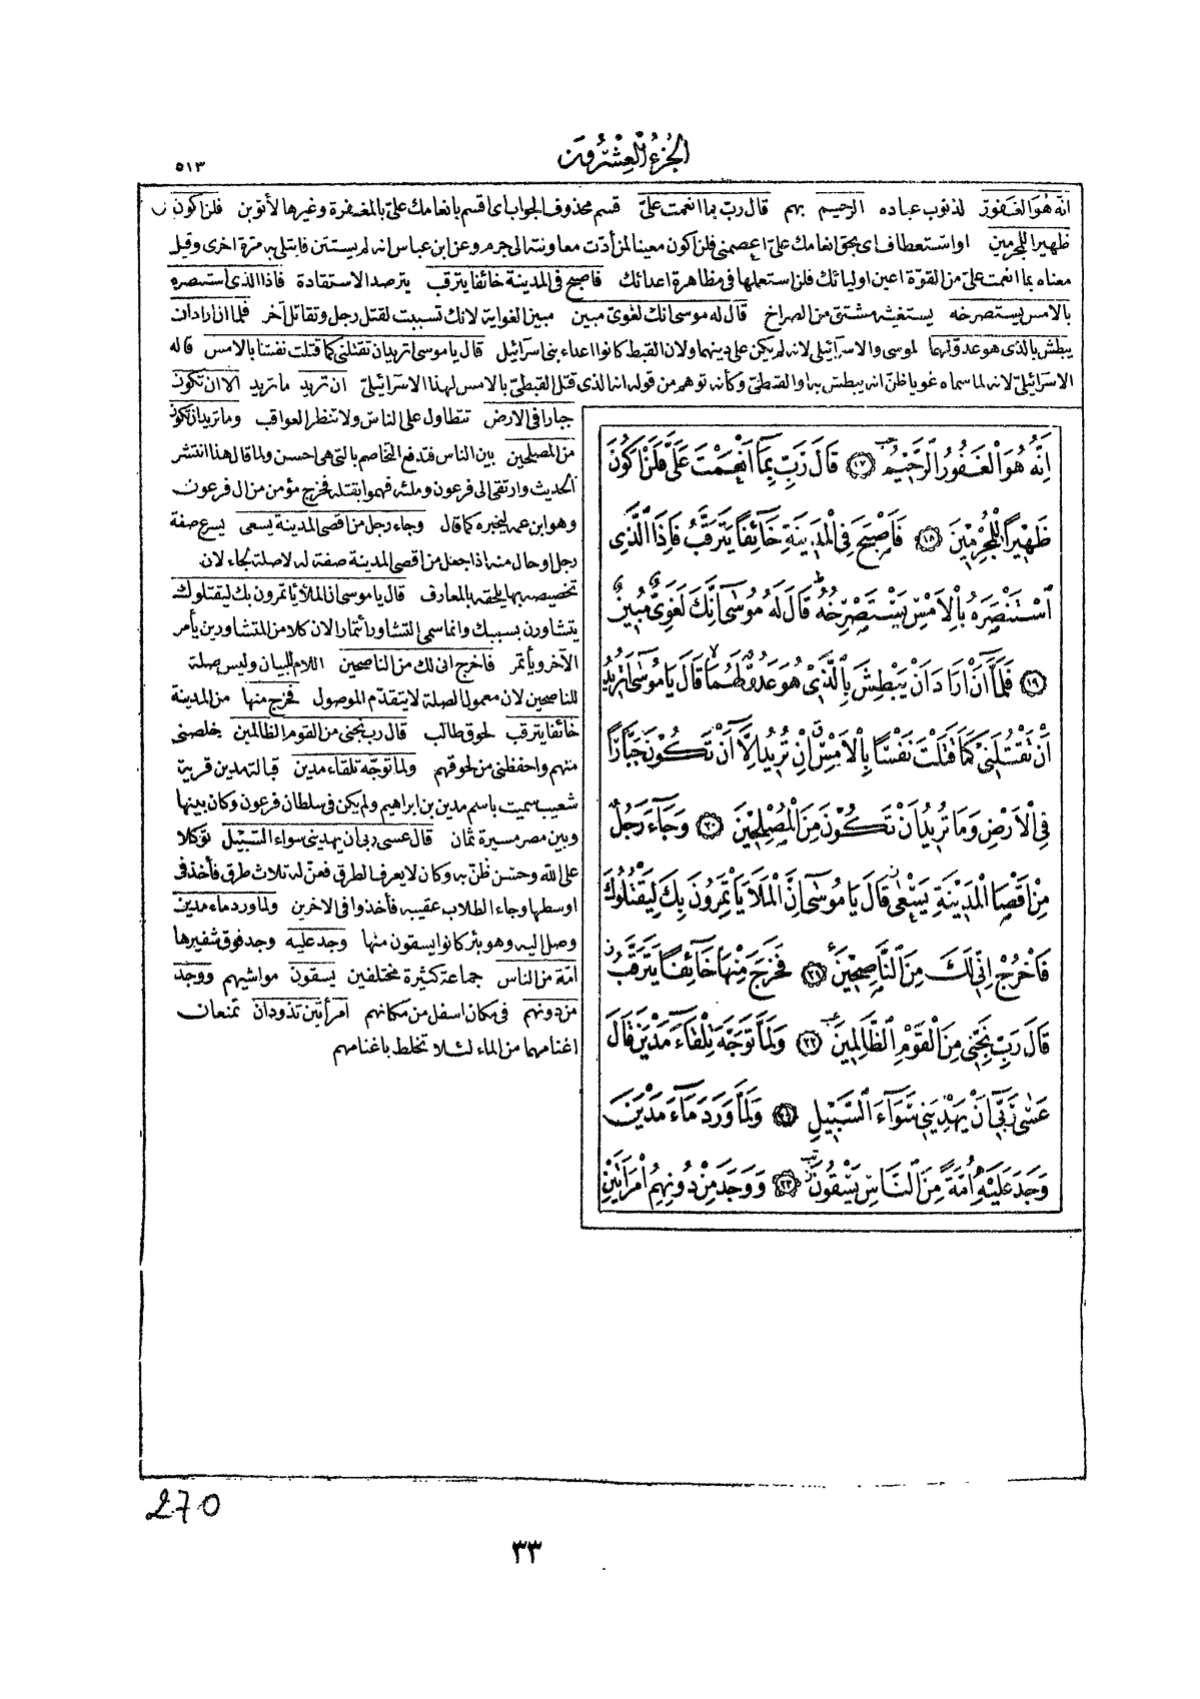 الجزء العشرون
٥١٣
انه هو الغفور لذنوب عباده الرحيم بهم قال رب بما انعمت علىّ قسم محذوف الجواب اى اقسم بانعامك علىّ بالمغفرة وغيرها لأتوبن فلن اكون
ظهيرا للمجرمين او استعطاف اى بحق انعامك علىّ اعصمنى فلن اكون معينا لمن أدّت معاونته الى جرم وعن ابن عباس انه لم يستثن فابتلى به مرة اخرى وقيل
معناه بما انعمت علىّ من القوة اعين اوليائك فلن استعملها فى مظاهرة اعدائك فاصبح فى المدينة خائفا يترقب يترصد الاستقادة فاذا الذى استنصره
بالامس يستصرخه يستغيثه مشتق من الصراخ قال له موسى انك لغوىّ مبين مبين الغواية لانك تسببت لقتل رجل وتقاتل آخر فلما ان اراد ان
يبطش بالذى هو عدو لهما لموسى والاسرائيلى لانه لم يكن على دينهما ولان القبط كانوا اعداء بنى اسرائيل قال يا موسى اتريد ان تقتلنى كما قتلت نفسا بالامس قاله
الاسرائيلىّ لانه لما سماه غويا ظنّ انه يبطش به او القبطىّ وكأنه توهم من قوله انه الذى قتل القبطىّ بالامس لهذا الاسرائيلىّ ان تريد ما تريد الا ان تكون
جبارا فى الارض تتطاول على الناس ولا تنظر العواقب وما تريد ان تكون
من المصلحين بين الناس فتدفع التخاصم بالتى هى احسن ولما قال هذا انتشر
الحديث وارتقى الى فرعون وملئه فهموا بقتله فخرج مؤمن من آل فرعون
وهو ابن عمه ليخبره كما قال وجاء رجل من اقصى المدينة يسعى يسرع صفة
رجل او حال منه اذا جعل من اقصى المدينة صفة له لا صلة لجاء لان
تخصيصه بها يلحقه بالمعارف قال يا موسى ان الملأ يأتمرون بك ليقتلوك
يتشاورن بسببك وانما سمى التشاور ائتمارا لان كلا من المتشاورين يأمر
الآخر ويأتمر فاخرج انى لك من الناصحين اللام للبيان وليس صلة
للناصحين لان معمول الصلة لا يتقدم الموصول فخرج منها من المدينة
خائفا يترقب لحوق طالب قال رب نجنى من القوم الظالمين خلصنى
منهم واحفظنى من لحوقهم ولما توجه تلقاء مدين قبالة مدين قرية
شعيب سميت باسم مدين بن ابراهيم ولم يكن فى سلطان فرعون وكان بينها
وبين مصر مسيرة ثمان قال عسى ربى ان يهدينى سواء السبيل توكلا
على الله وحسن ظنّ به وكان لا يعرف الطرق فعنّ له ثلاث طرق فأخذ فى
اوسطها وجاء الطلاب عقيبه فأخذوا فى الاخرين ولما ورد ماء مدين
وصل اليه وهو بئر كانوا يسقون منها وجد عليه وجد فوق شفيرها
امة من الناس جماعة كثيرة مختلفين يسقون مواشيهم ووجد
من دونهم فى مكان اسفل من مكانهم امرأتين تذودان تمنعان
اغنامهما من الماء لئلا تختلط باغنامهم
اِنَّهُ هُوَ الْغَفُورُ الرَّحِيمُ ١٧ قَالَ رَبِّ بِمَا اَنْعَمْتَ عَلَىَّ فَلَنْ اَكُونَ
ظَهِيرًا لِلْمُجْرِمِينَ ١٨ فَاَصْبَحَ فِى الْمَدِينَةِ خَائِفًا يَتَرَقَّبُ فَاِذَا الَّذِى
اسْتَنْصَرَهُ بِالْاَمْسِ يَسْتَصْرِخُهُ قَالَ لَهُ مُوسَى اِنَّكَ لَغَوِىٌّ مُبِينٌ
١٩ فَلَمَّا اَنْ اَرَادَ اَنْ يَبْطِشَ بِالَّذِى هُوَ عَدُوٌّ لَهُمَا قَالَ يَا مُوسَى اَتُرِيدُ
اَنْ تَقْتُلَنِى كَمَا قَتَلْتَ نَفْسًا بِالْاَمْسِ اِنْ تُرِيدُ اِلَّا اَنْ تَكُونَ جَبَّارًا
فِى الْاَرْضِ وَمَا تُرِيدُ اَنْ تَكُونَ مِنَ الْمُصْلِحِينَ ٢٠ وَجَاءَ رَجُلٌ
مِنْ اَقْصَا الْمَدِينَةِ يَسْعٰى قَالَ يَا مُوسَى اِنَّ الْمَلَاَ يَأْتَمِرُونَ بِكَ لِيَقْتُلُوكَ
فَاخْرُجْ اِنِّى لَكَ مِنَ النَّاصِحِينَ ٢١ فَخَرَجَ مِنْهَا خَائِفًا يَتَرَقَّبُ
قَالَ رَبِّ نَجِّنِى مِنَ الْقَوْمِ الظَّالِمِينَ ٢٢ وَلَمَّا تَوَجَّهَ تِلْقَاءَ مَدْيَنَ قَالَ
عَسٰى رَبِّى اَنْ يَهْدِيَنِى سَوَاءَ السَّبِيلِ وَلَمَّا وَرَدَ مَاءَ مَدْيَنَ
وَجَدَ عَلَيْهِ اُمَّةً مِنَ النَّاسِ يَسْقُونَ ٢٣ وَوَجَدَ مِنْ دُونِهِمُ امْرَاَتَيْنِ
270
٣٣